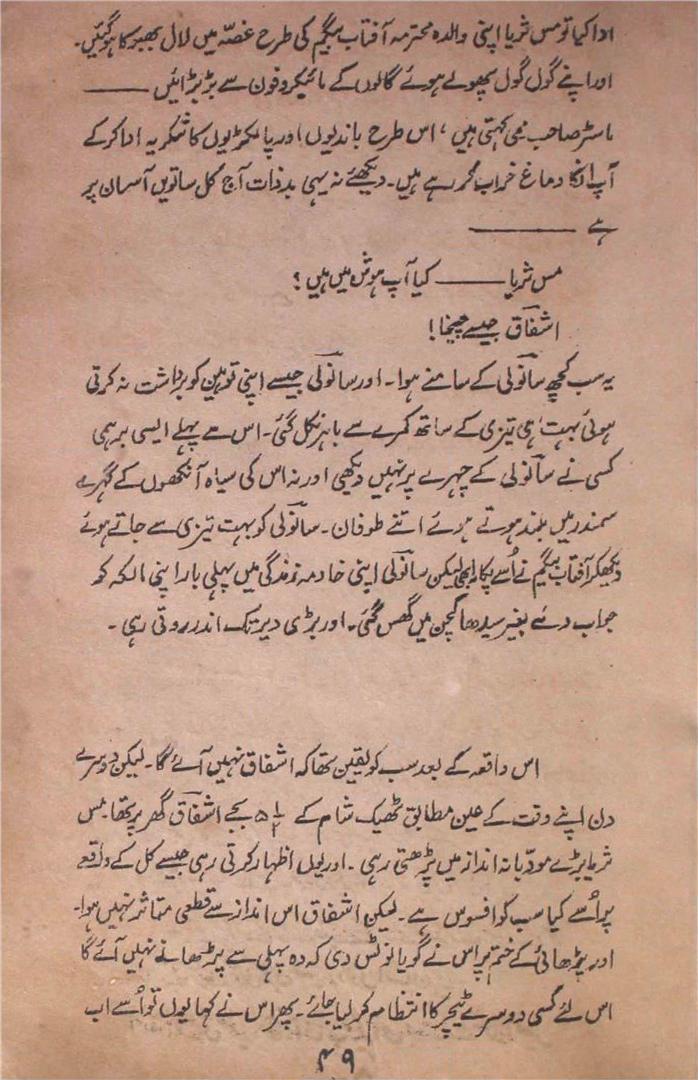 ادا کیا تو مس ثریا اپنی والدہ محترمہ آفتاب بیگم کی طرح غصّہ میں لال بھبوکا ہو گئیں۔
اور اپنے گول گول پھولے ہوئے گالوں کے مائیکروفون سے بڑبڑائیں ———
ماسٹر صاحب ممی کہتی ہیں، اس طرح باندیوں اور پامکڑیوں کا شکریہ ادا کر کے
آپ انکا دماغ خراب کر رہے ہیں۔ دیکھئے نہ یہی بدذات آج کل ساتویں آسمان پر
ہے ———
مس ثریا ——— کیا آپ ہوش میں ہیں؟
اشفاق جیسے چیخا!
یہ سب کچھ سانولی کے سامنے ہوا۔ اور سانولی جیسے اپنی توہین کو برداشت نہ کرتی
ہوئی بہت ہی تیزی کے ساتھ کمرے سے باہر نکل گئی۔ اس سے پہلے ایسی برہمی
کسی نے سانولی کے چہرے پر نہیں دیکھی اور نہ اس کی سیاہ آنکھوں کے گہرے
سمندر میں بلند ہوتے ہوئے اتنے طوفان۔ سانولی کو بہت تیزی سے جاتے ہوئے
دیکھکر آفتاب بیگم نے اُسے پکارا بھی لیکن سانولی اپنی خادمہ زندگی میں پہلی بار اپنی مالکہ کو
جواب دئے بغیر سیدھا کچن میں گھس گئی۔ اور بڑی دیر تک اندر روتی رہی۔
اس واقعہ کے بعد سب کو یقین تھا کہ اشفاق نہیں آئے گا۔ لیکن دوسرے
دن اپنے وقت کے عین مطابق ٹھیک شام کے ۵½ بجے اشفاق گھر پر تھا۔ مس
ثریا بڑے مودّبانہ انداز میں پڑھتی رہی۔ اور یوں اظہار کرتی رہی جیسے کل کے واقعے
پر اُسے کیا سب کو افسوس ہے۔ لیکن اشفاق اس انداز سے قطعی متاثر نہیں ہوا۔
اور پڑھائی کے ختم پر اس نے گویا نوٹس دی کہ وہ پہلی سے پڑھانے نہیں آئے گا
اس لئے کسی دوسرے ٹیچر کا انتظام کر لیا جائے۔ پھر اس نے کہا یوں تو اُسے اب
۴۹